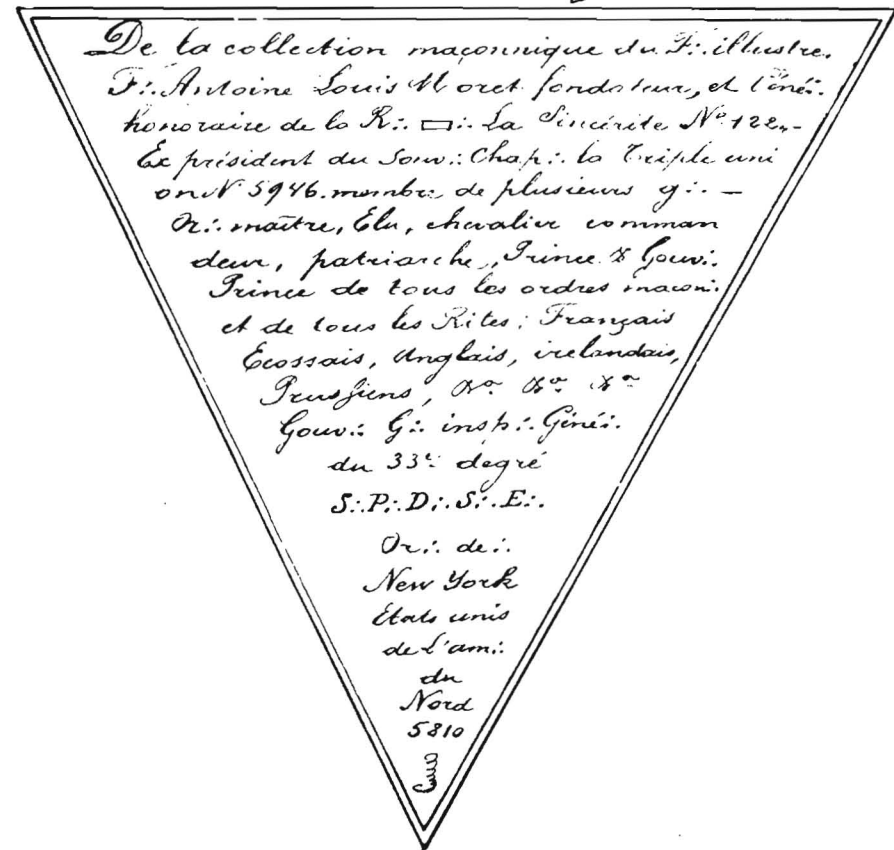 De la collection maçonnique du F∴ illustre.
F∴ Antoine Louis Moret fondateur, et Véné∴
honoraire de la R∴ ▭∴ La Sincérite Nº 122,-
Ex président du Souv∴ Chap∴ la Triple uni
on Nº 5946. membre de plusieurs g∴ –
Or∴ maître, Elu, chevalier comman
deur, patriarche, Prince & Gouv∴
Prince de tous les ordres maçon∴
et de tous les Rites; Français
Ecossais, Anglais, irelandais,
Prussiens, &ª &ª &ª
Gouv∴ G∴ insp∴ Géné∴
du 33ᵉ degré
S∴P∴D∴S∴E∴
Or∴ de∴
New York
Etats unis
de l'am∴
du
Nord
5810